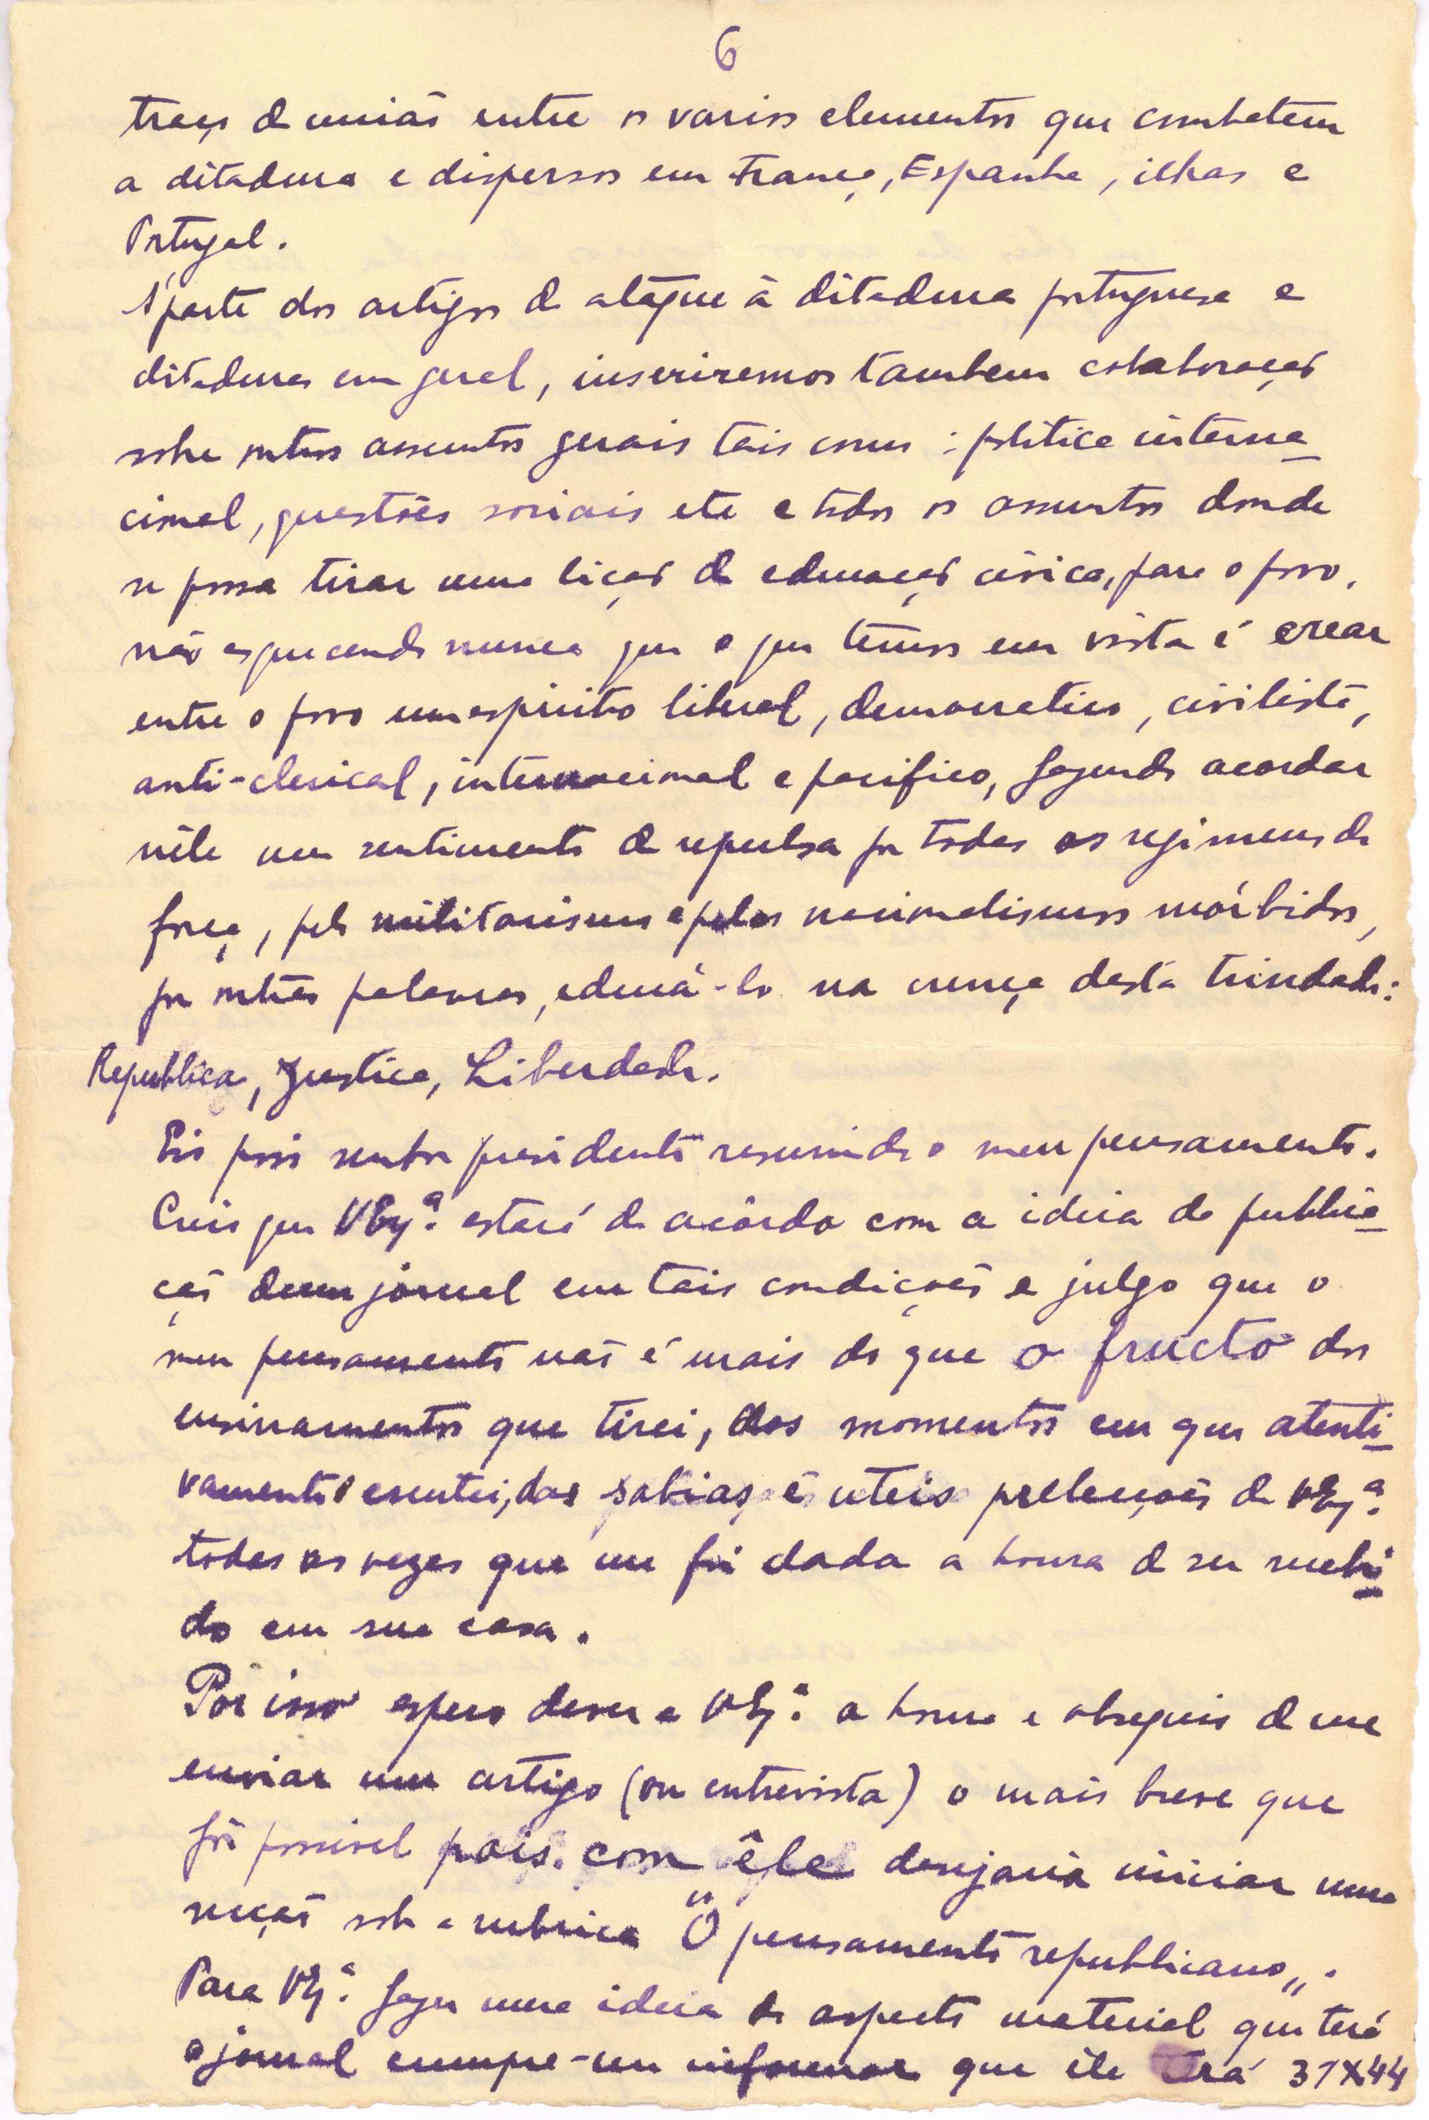 6
traço de união entre os varios elementos que combatem
a ditadura e dispersos em França, Espanha, ilhas e
Portugal.
Áparte dos artigos de ataque á ditadura portuguesa e
ditaduras em geral, inseriremos tambem colaboração
sobre outros assuntos gerais tais como: politica interna-
cional, questões sociais etc e todos os assuntos donde
se possa tirar uma lição de educação civica, para o povo,
não esquecendo nunca que o que temos em vista é crear
entre o povo um espirito liberal, democratico, civilista,
anti-clerical, internacional e pacifico, fazendo acordar
nêle um sentimento de repulsa por todos os regimens de
força, pelo militarismo e pelos nacionalismos mórbidos,
por outras palavras, educá-lo na crença desta trindade:
Republica, Justiça, Liberdade.
Eis pois senhor presidente resumindo o meu pensamento.
Creio que V Exª. estará de acôrdo com a ideia da publica-
ção dum jornal em tais condições e julgo que o
meu pensamento não é mais do que o fructo dos
ensinamentos que tirei, dos momentos em que atenti-
vamente escutei, das sabias e uteis prelecções de V Exª.
todas as vezes que me foi dada a honra de ser recebi-
do em sua casa.
Por isso espero dever a V Exª. a honra e obsequio de me
enviar um artigo (ou entrevista) o mais breve que
fôr possivel pois com êle desejaria iniciar uma
secção sob a rubrica "O pensamento republicano".
Para V Exª. fazer uma ideia do aspecto material que terá
o jornal cumpre-me informar que êle terá 31X44